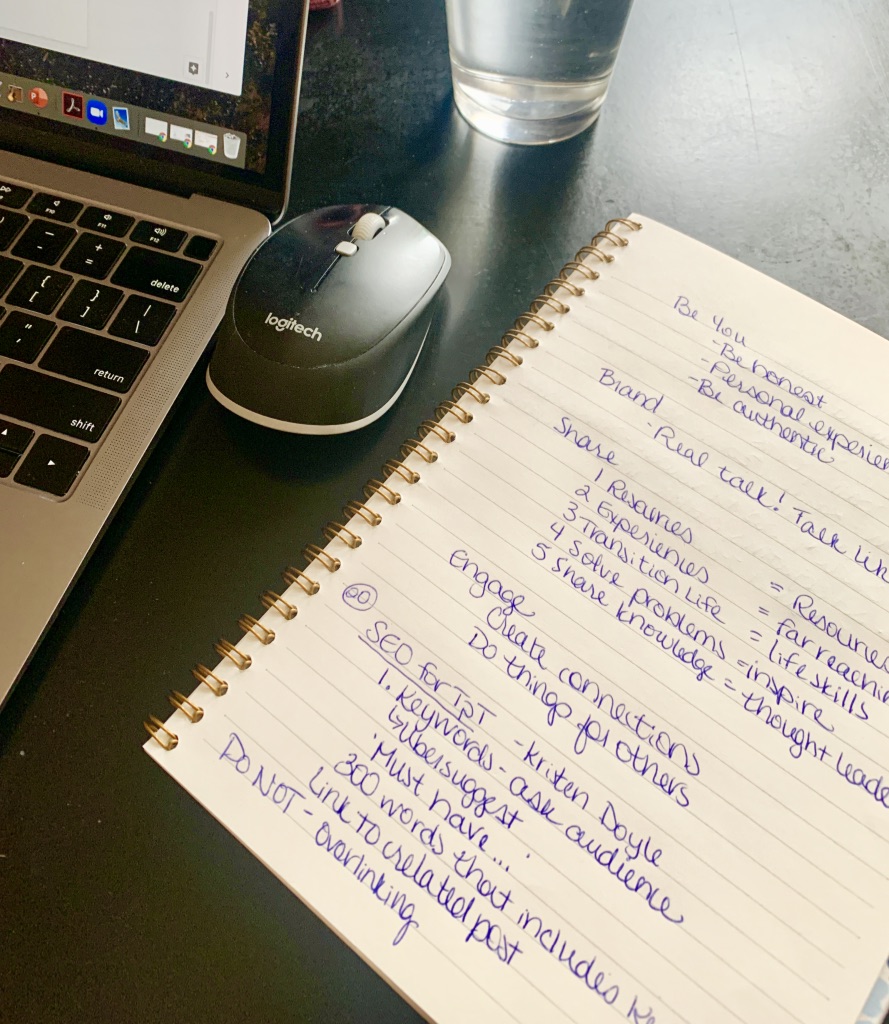 F10
F11
F12
delete
return
shift
logitech
Be You
-Be honest
-Personal experien
-Be authentic
Brand
-Real talk! Talk lik
Share
1 Resources = Resources
2 Experiences = far reachin
3 Transition Life = life skills
4 Solve problems = inspire
5 Share knowledge = thought leade
Engage
Create connections
Do things for others
20
SEO for TpT - Kristen Doyle
1. Keywords - ask audience
↳ Ubersuggest
·Must have...
300 words that includes Ke
Link to related post
Do NOT - overlinking